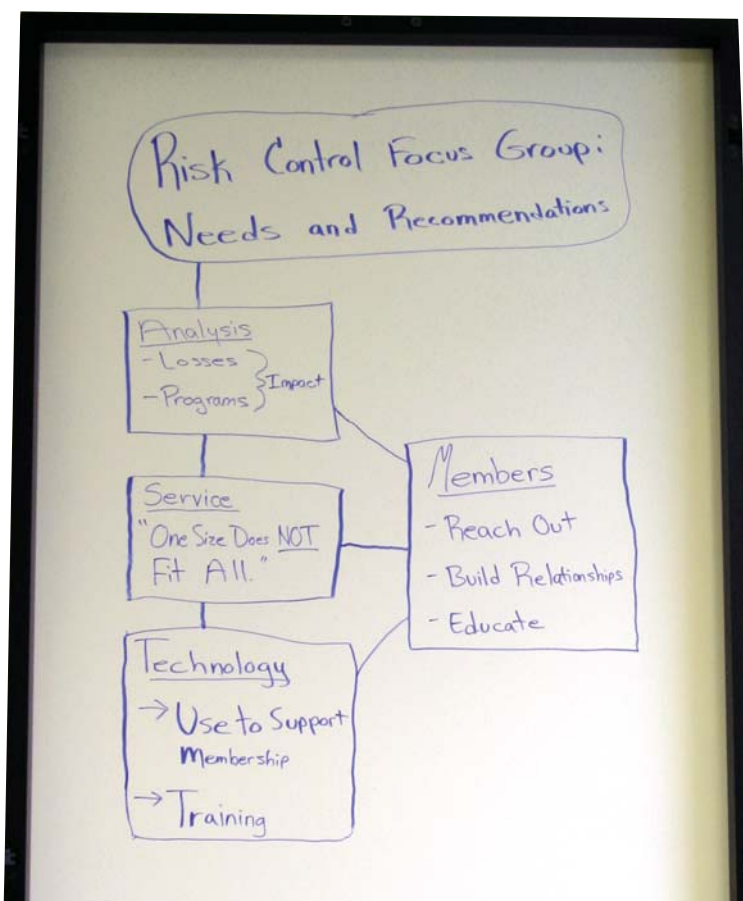 Risk Control Focus Group:
Needs and Recommendations
Analysis
- Losses
- Programs } Impact
Service
"One Size Does NOT
Fit All."
Technology
→ Use to Support
Membership
→ Training
Members
- Reach Out
- Build Relationships
- Educate